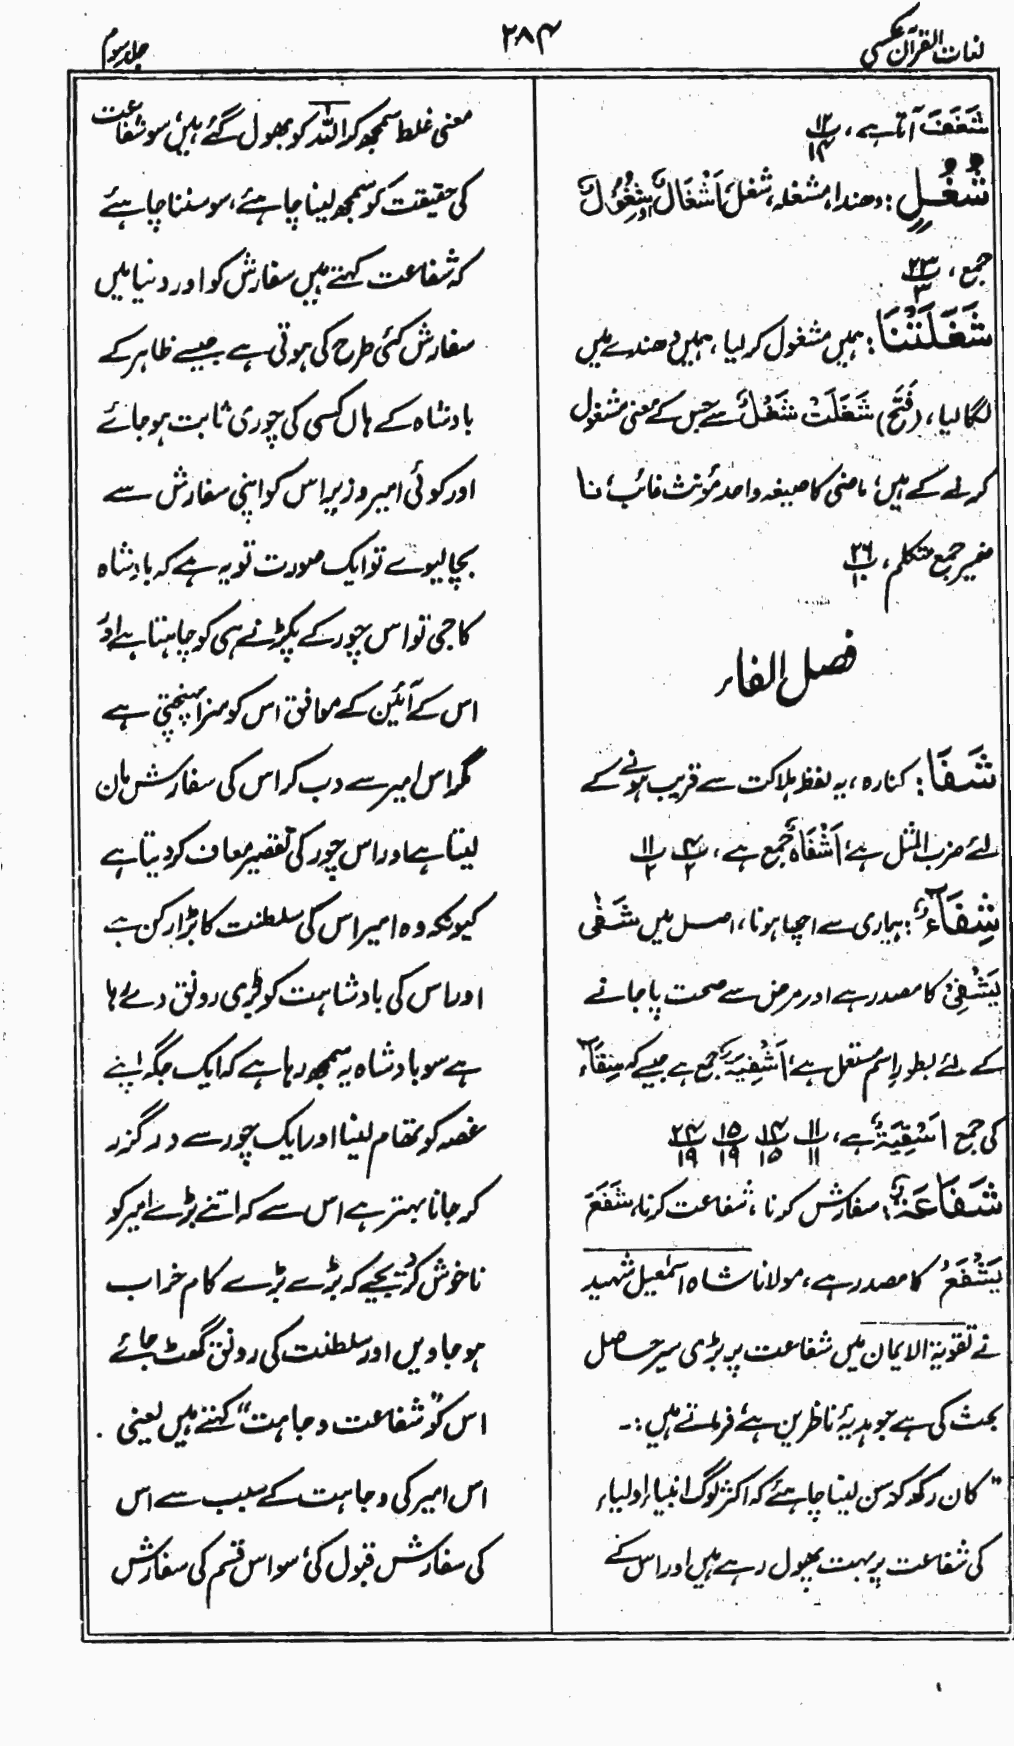 لغات القرآن عکسی
۲۸۴
جلد سوم
شَغَفَ آتا ہے، ۱۲/۱۴
شُغُلٍ: دھندا، مشغلہ، شغل، اَشْغَالٌ اور شُغُوْلٌ
جمع، ۲۳/۳
شَغَلَتْنَا: ہمیں مشغول کر لیا، ہمیں دھندے میں
لگا لیا، (فَتَحَ) شَغَلَتْ شَغْلٌ سے جس کے معنی مشغول
کر لے کے ہیں، ماضی کا صیغہ واحد مؤنث غائب، نا
ضمیر جمع متکلم، ۲۶/۱۰
فصل الفاء
شَفَا: کنارہ، یہ لفظ ہلاکت سے قریب ہونے کے
لئے ضرب المثل ہے، اَشْفَاءٌ جمع ہے، ۴/۲ ۱۱/۲
شِفَآءٌ: بیماری سے اچھا ہونا، اصل میں شَفٰی
یَشْفِیْ کا مصدر ہے اور مرض سے صحت پا جانے
کے لئے بطور اسم مستعمل ہے، اَشْفِیَۃٌ جمع ہے جیسے کہ سِقَآءٌ
کی جمع اَسْقِیَۃٌ ہے، ۱۱/۱۱ ۱۴/۱۵ ۱۵/۱۹ ۲۴/۱۹
شَفَاعَۃٌ: سفارش کرنا، شفاعت کرنا، شَفَعَ
یَشْفَعُ کا مصدر ہے، مولانا شاہ اسمٰعیل شہید
نے تقویۃ الایمان میں شفاعت پر بڑی سیر حاصل
بحث کی ہے جو ہدیۂ ناظرین ہے، فرماتے ہیں:۔
"کان رکھ کر سن لینا چاہئے کہ اکثر لوگ انبیاء اولیاء
کی شفاعت پر بہت پھول رہے ہیں اور اس کے
معنی غلط سمجھ کر اللہ کو بھول گئے ہیں، سو شفاعت
کی حقیقت کو سمجھ لینا چاہئے، سو سننا چاہئے
کہ شفاعت کہتے ہیں سفارش کو اور دنیا میں
سفارش کئی طرح کی ہوتی ہے جیسے ظاہر کے
بادشاہ کے ہاں کسی کی چوری ثابت ہو جائے
اور کوئی امیر وزیر اس کو اپنی سفارش سے
بچا لیوے تو ایک صورت تو یہ ہے کہ بادشاہ
کا جی تو اس چور کے پکڑنے ہی کو چاہتا ہے اور
اس کے آئین کے موافق اس کو سزا پہنچتی ہے
مگر اس امیر سے دب کر اس کی سفارش مان
لیتا ہے اور اس چور کی تقصیر معاف کر دیتا ہے
کیونکہ وہ امیر اس کی سلطنت کا بڑا رکن ہے
اور اس کی بادشاہت کو بڑی رونق دے رہا
ہے سو بادشاہ یہ سمجھ رہا ہے کہ ایک جگہ اپنے
غصہ کو تھام لینا اور ایک چور سے درگزر
کر جانا بہتر ہے اس سے کہ اتنے بڑے امیر کو
ناخوش کر دیجے کہ بڑے بڑے کام خراب
ہو جاویں اور سلطنت کی رونق گھٹ جائے
اس کو "شفاعت وجاہت" کہتے ہیں یعنی
اس امیر کی وجاہت کے سبب سے اس
کی سفارش قبول کی، سو اس قسم کی سفارش